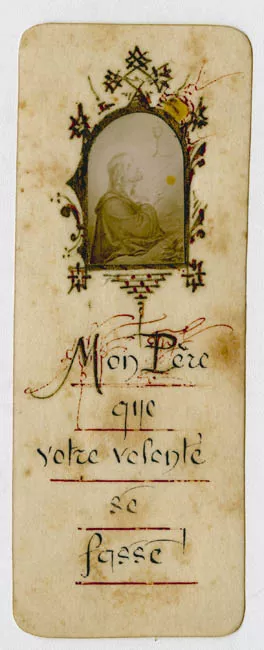 Mon Père
que
votre volonté
se
fasse!